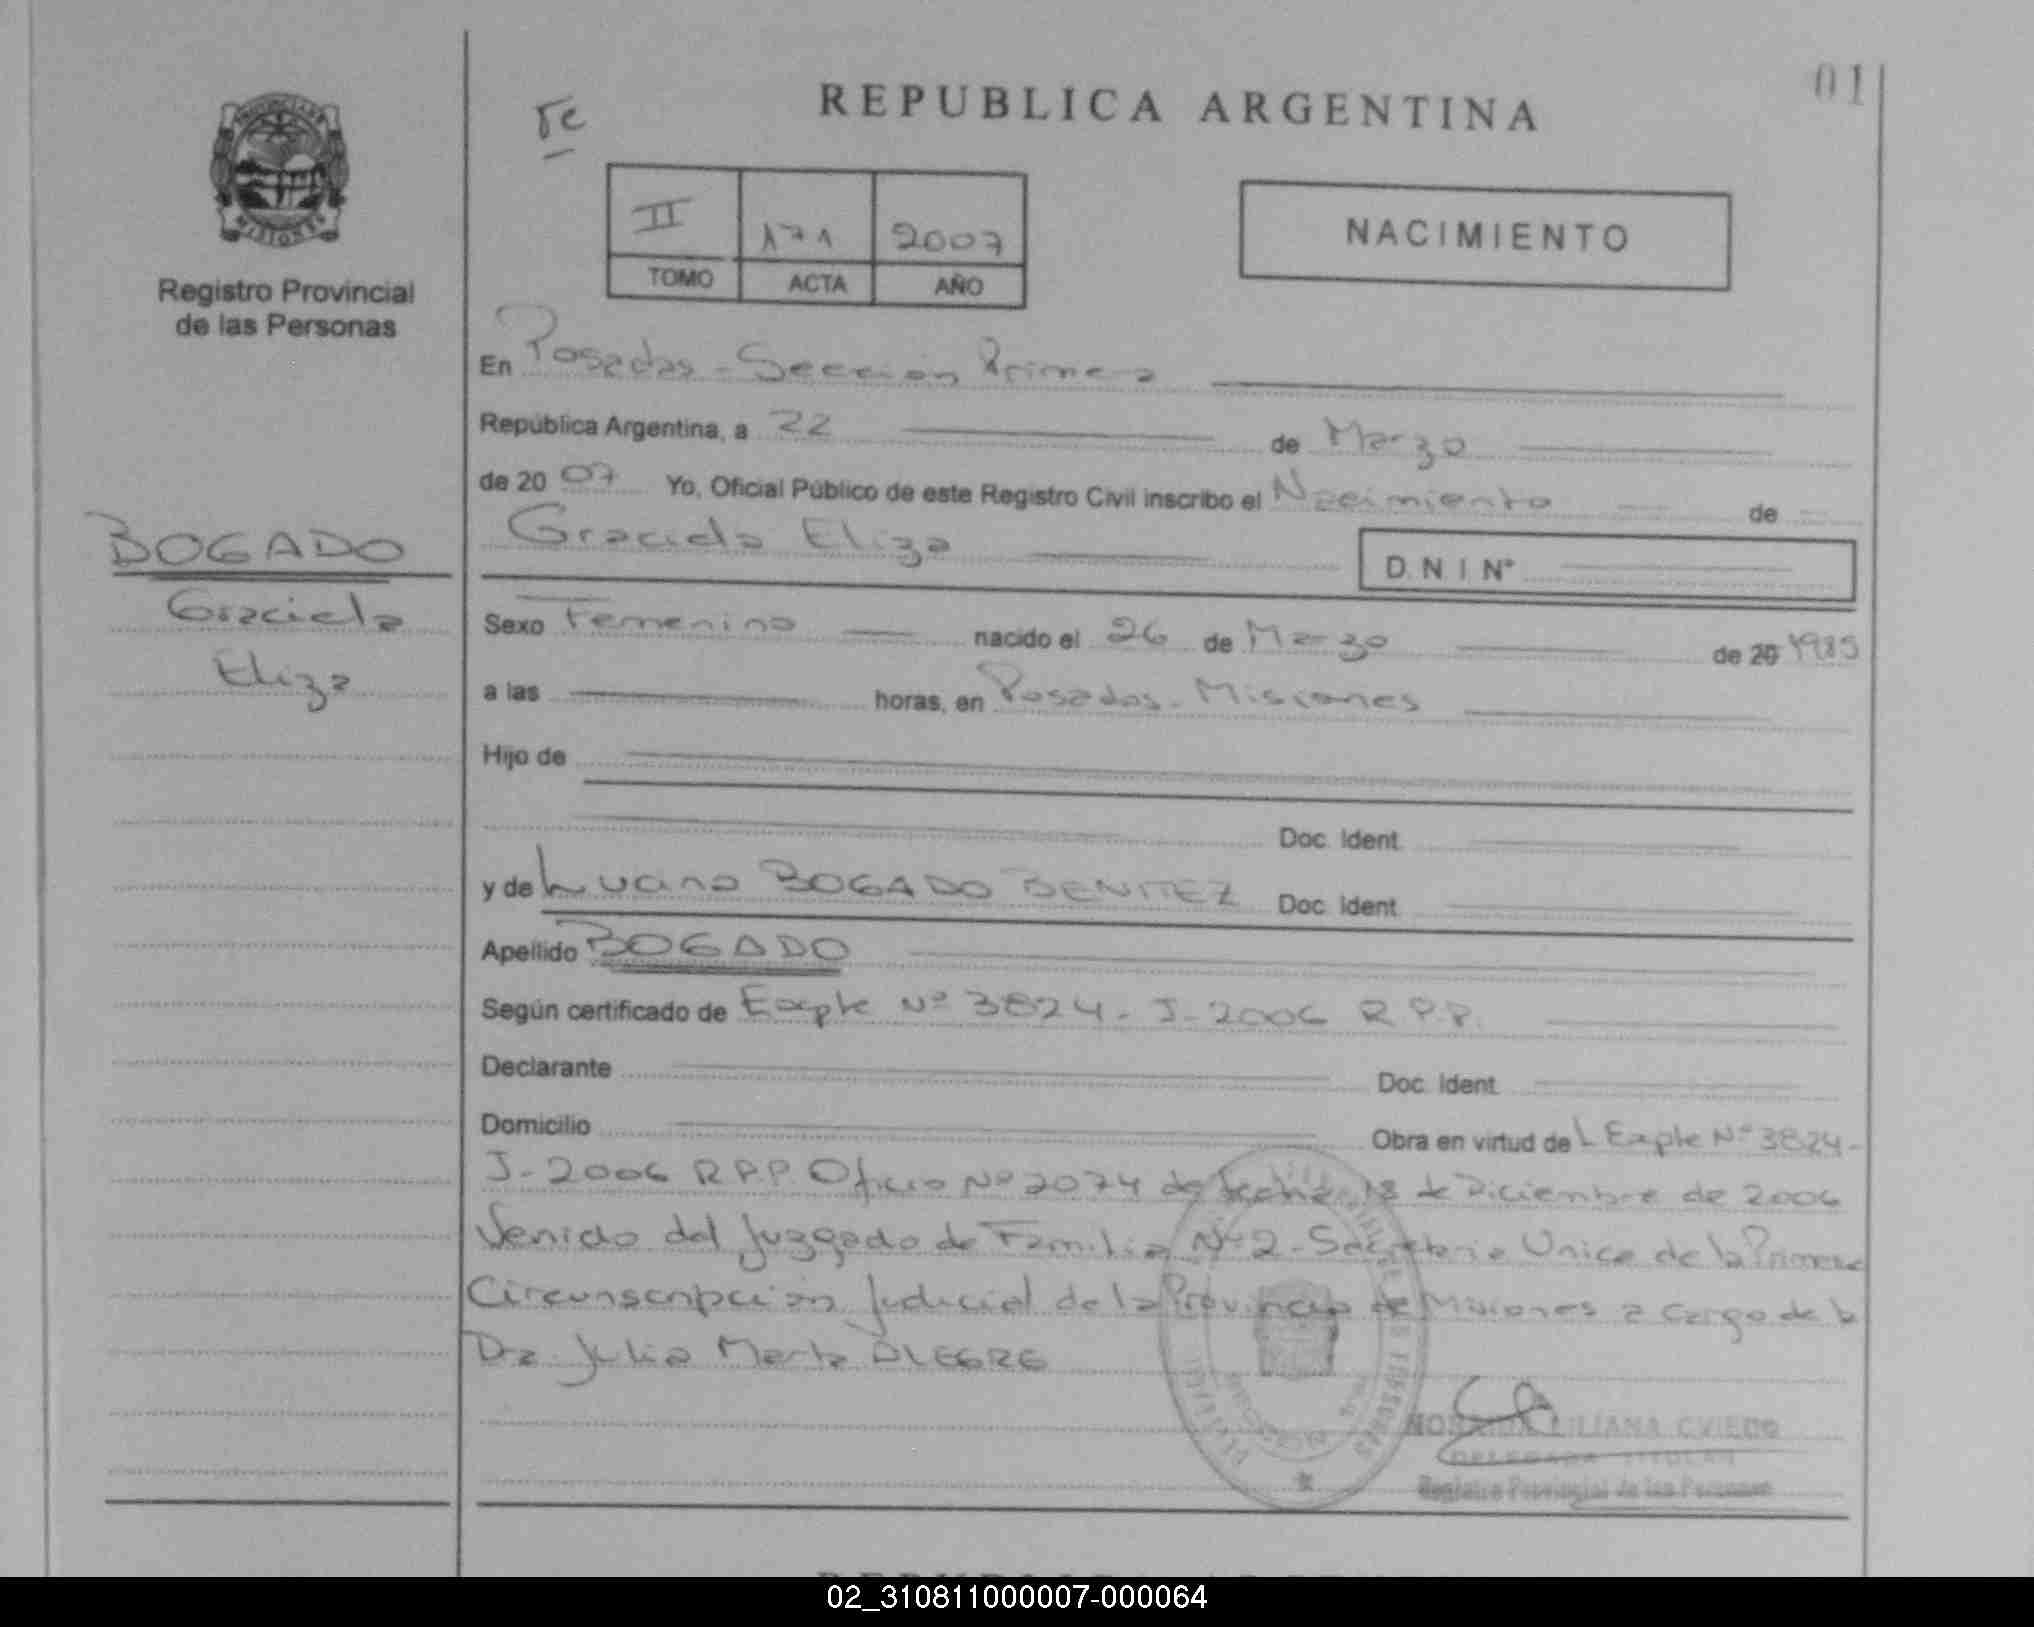 01
REPUBLICA ARGENTINA
PROVINCIA DE
MISIONES
Registro Provincial
de las Personas
II 171 2007
TOMO ACTA AÑO
NACIMIENTO
En Posadas - Sección Primera
República Argentina, a 22 de Marzo
de 2007 Yo, Oficial Público de este Registro Civil inscribo el Nacimiento de
Graciela Eliza D.N.I Nº
BOGADO
Graciela
Eliza
Sexo Femenino nacido el 26 de Marzo de 20 1985
a las horas, en Posadas - Misiones
Hijo de
Doc. Ident.
y de Luciano BOGADO BENITEZ Doc. Ident.
Apellido BOGADO
Según certificado de Expte Nº 3824 - J - 2006 R.P.P.
Declarante Doc. Ident.
Domicilio Obra en virtud del Expte Nº 3824 -
J - 2006 R.P.P. Oficio Nº 2074 de fecha 18 de Diciembre de 2006
Venido del Juzgado de Familia Nº 2 - Secretaria Unica de la Primera
Circunscripción Judicial de la Provincia de Misiones a cargo de la
Dra Julia Marta ALEGRE
LILIANA OVIEDO
DELEGADA TITULAR
Registro Provincial de las Personas
02_310811000007-000064